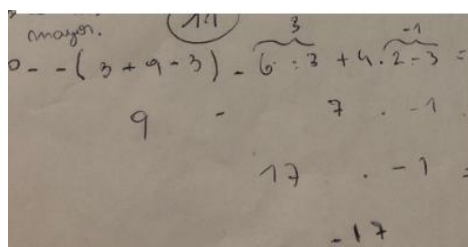 mayor. 14
3 -1
- - (3 + 9 - 3) - 6 : 3 + 4 . 2 - 3 =
9 - 7 . -1
17 . -1 =
-17